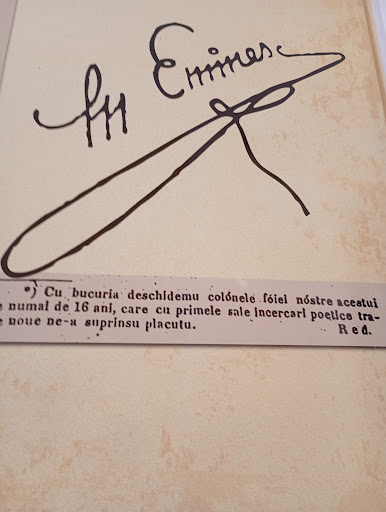 M Eminesc
*) Cu bucuria deschidemu colónele fóiei nóstre acestui
numai de 16 ani, care cu primele sale incercari poetice tra-
e noue ne-a suprinsu placutu. Red.